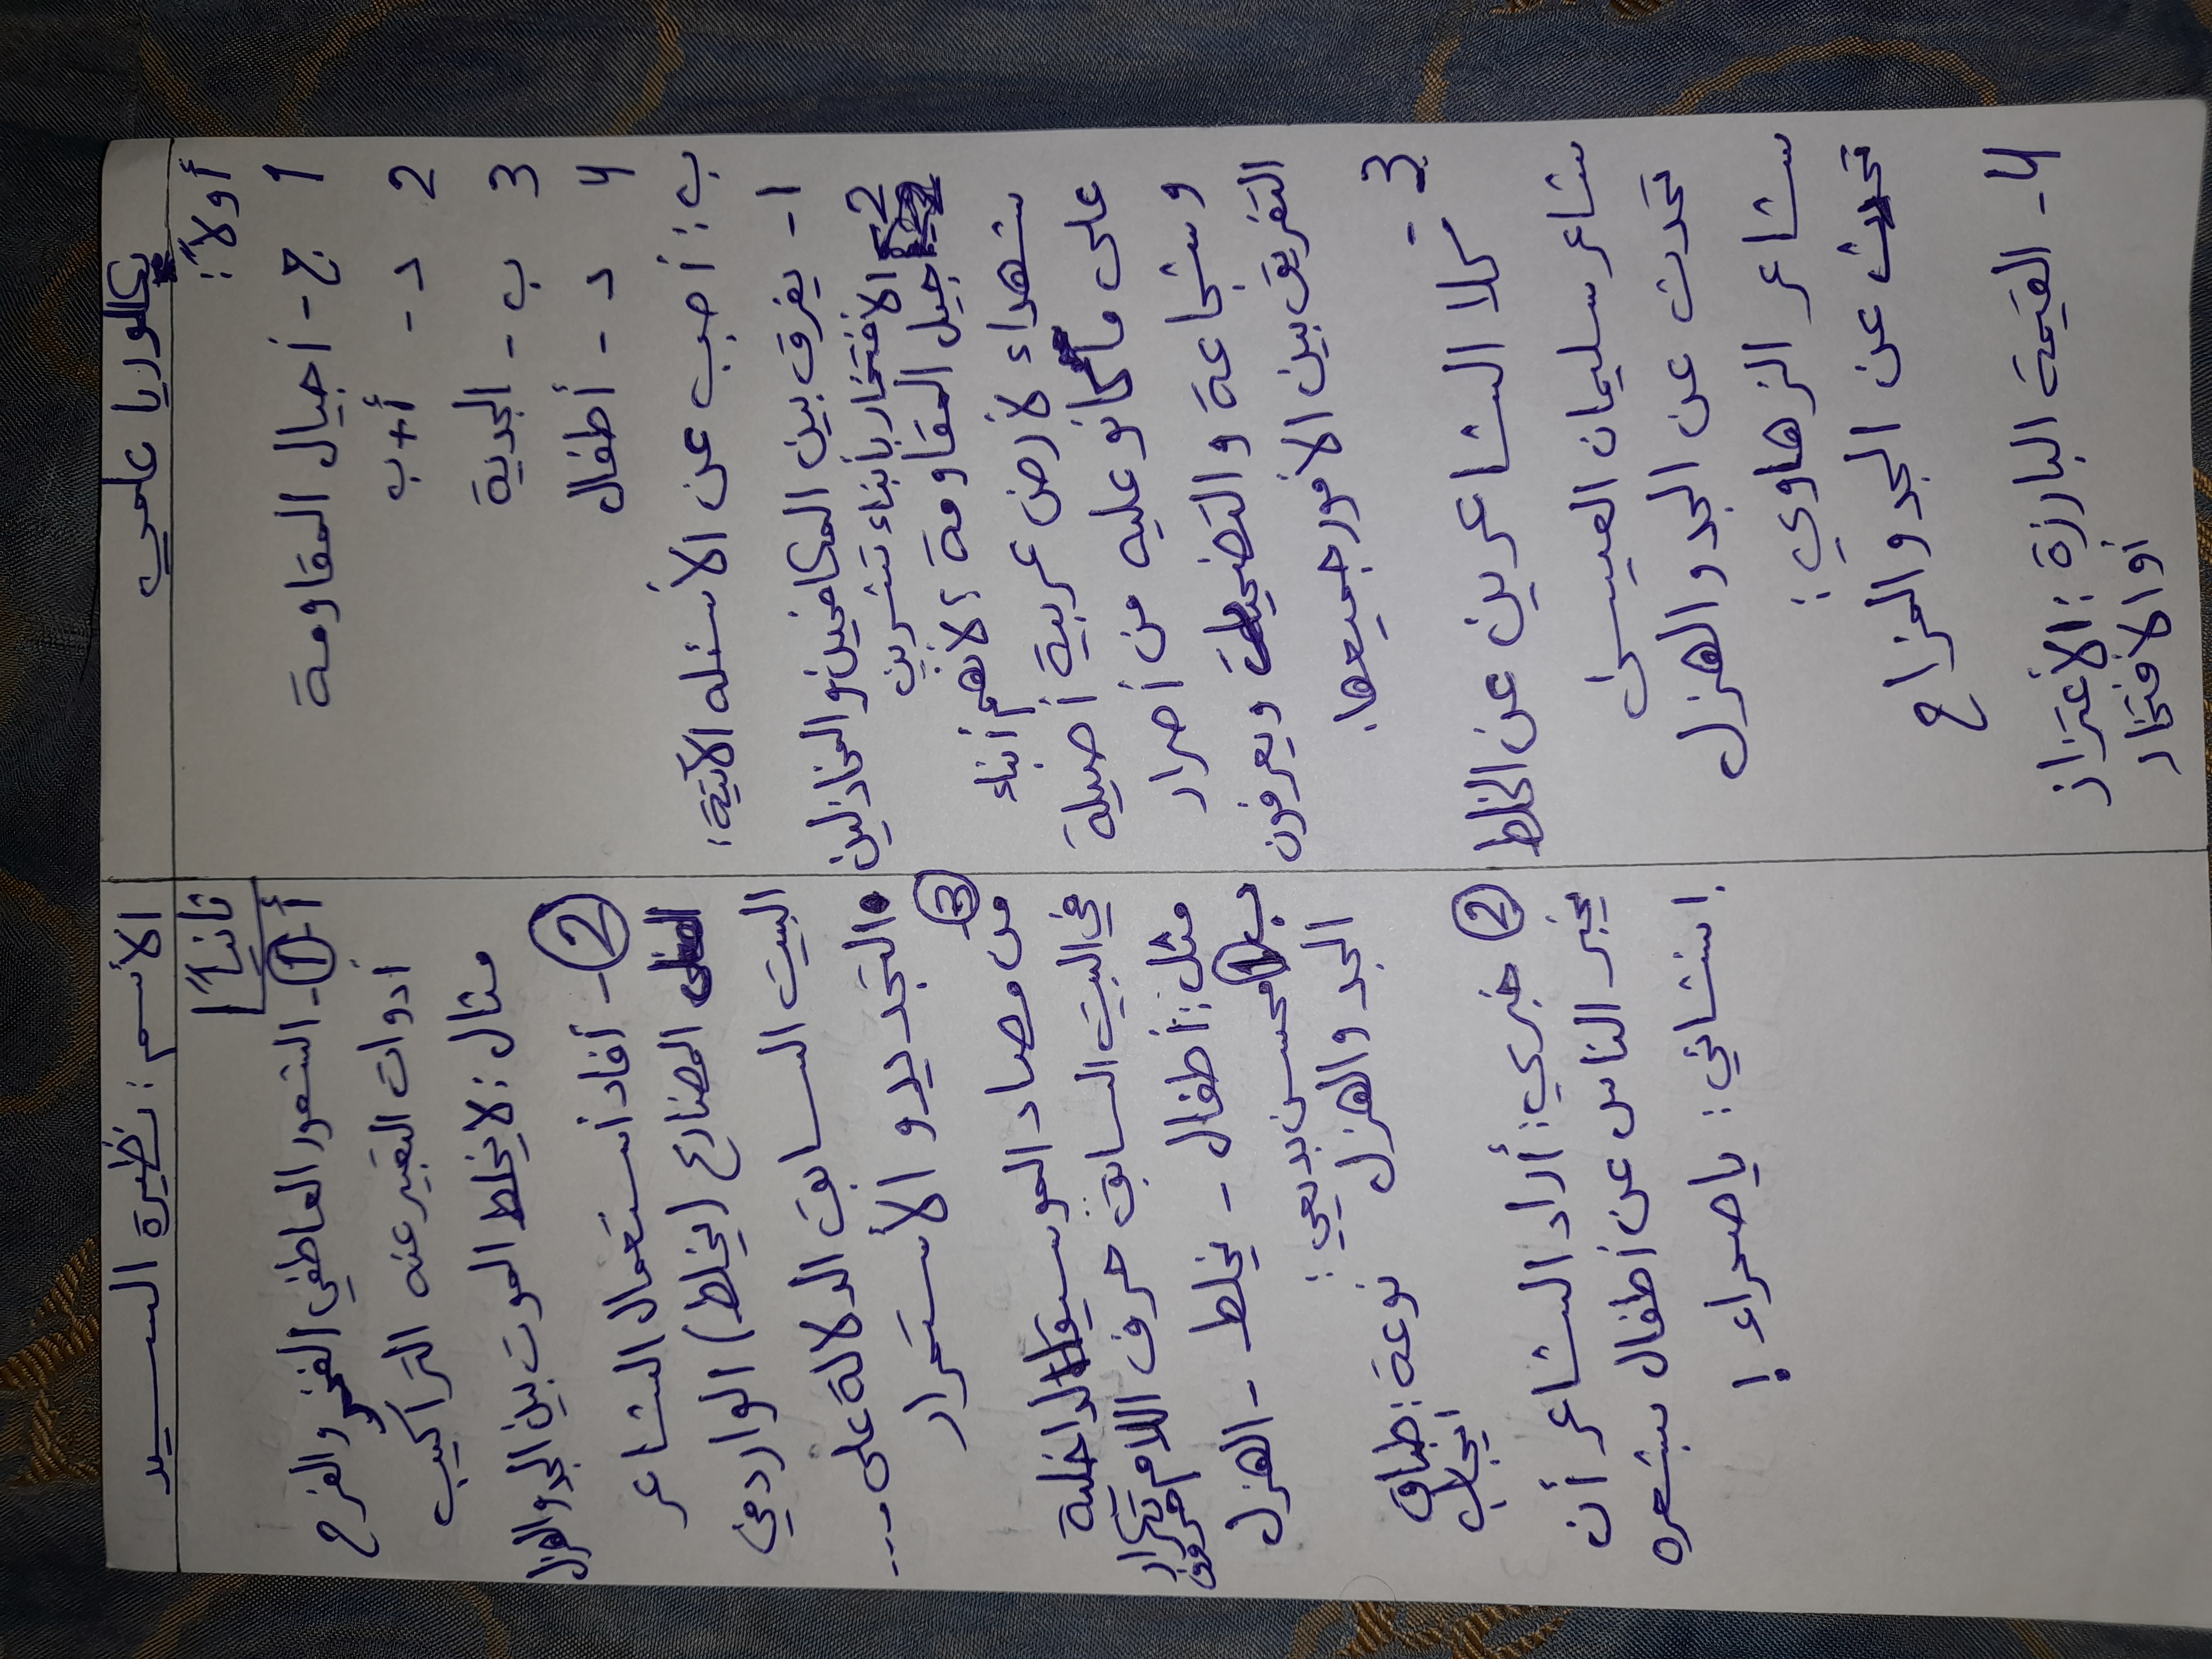 بكالوريا علمي
أولاً:
1 ج- أجيال المقاومة
2 د- أ+ب
3 ب- الجدية
4 د- أطفال
ب: أجب عن الأسئله الآتية:
1- يفرق بين المكافحين والمخاذلين
2 الافتخار بأبناء تشرين
جيل المقاومة؛ لأنهم أبناء
شهداء لأرض عربية أصيلة
على ماكانو عليه من أصرار
وشجاعة والتضحية ويعرفون
التفريق بين الأمور جميعها.
3- كلا الشاعرين عن الخلط
شاعر سليمان العيسى
تحدث عن الجد والهزل
شاعر الزهاوي:
تحدث عن الجد والمزاح
4- القيمة البارزة: الأعتزاز
أو الافتخار
الأسم: نظيرة السيد
ثانياً
أ- 1- الشعور العاطفي الفخر والفرح
أدوات التعبير عنه التراكيب
مثال: لايخلط الموت بين الجد والهزل
2- أفاد أستعمال الشاعر
المضارع (يخلط) الوارد في
البيت السابق الدلالة على...
التجديد و الأستمرار
3 من مصاد الموسيقا الداخلية
في البيت السابق حرف اللام تكرار حروف
مثل: أطفال - يخلط - الهزل
ب 1 محسن بديعي:
الجد والهزل نوعة: طباق ايجاب
2 خبري: أراد الشاعر أن
يخبر الناس عن أطفال بشعره
إنشائي: ياصحراء!